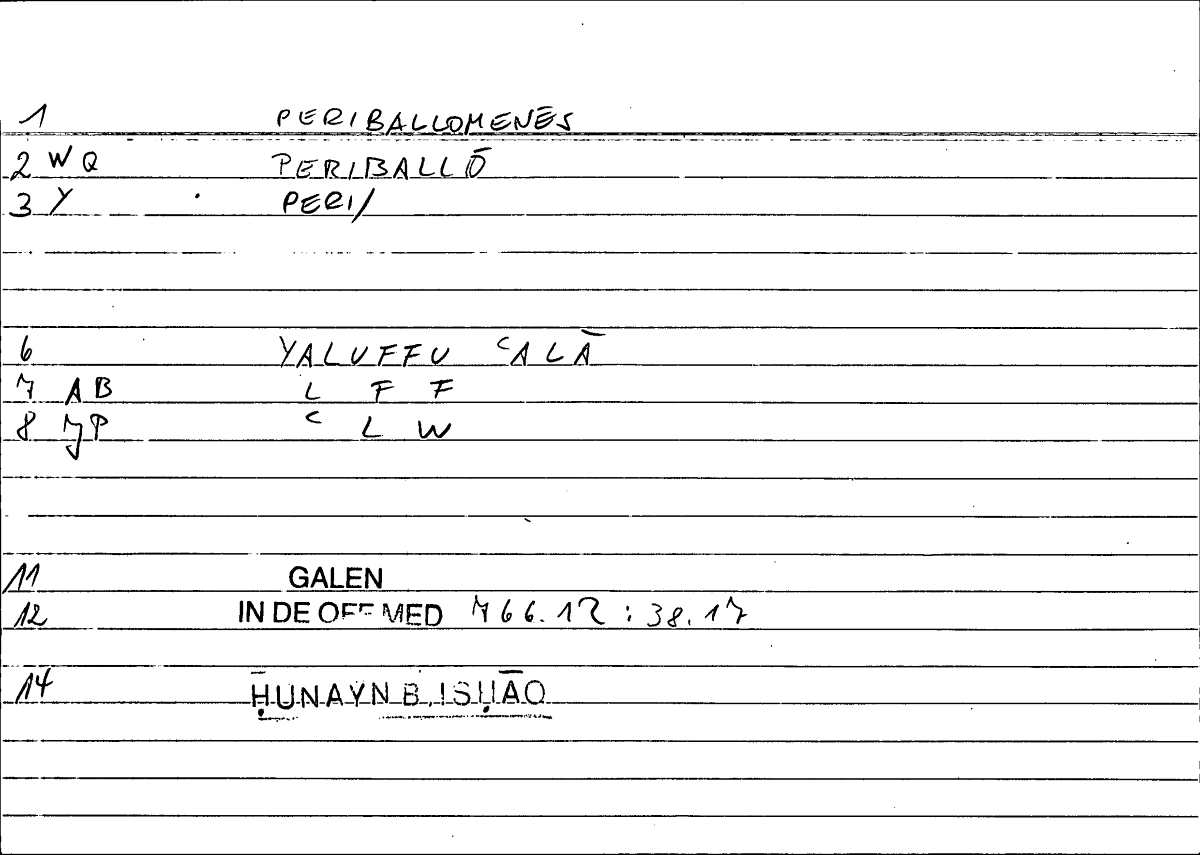 1 PERIBALLOMENĒS
2 WQ PERIBALLŌ
3 Y PERI/
6 YALUFFU ʿALĀ
7 AB L F F
8 JP ʿ L W
11 GALEN
12 IN DE OFF MED 766.12 : 38.17
14 ḤUNAYN B. ISḤĀQ